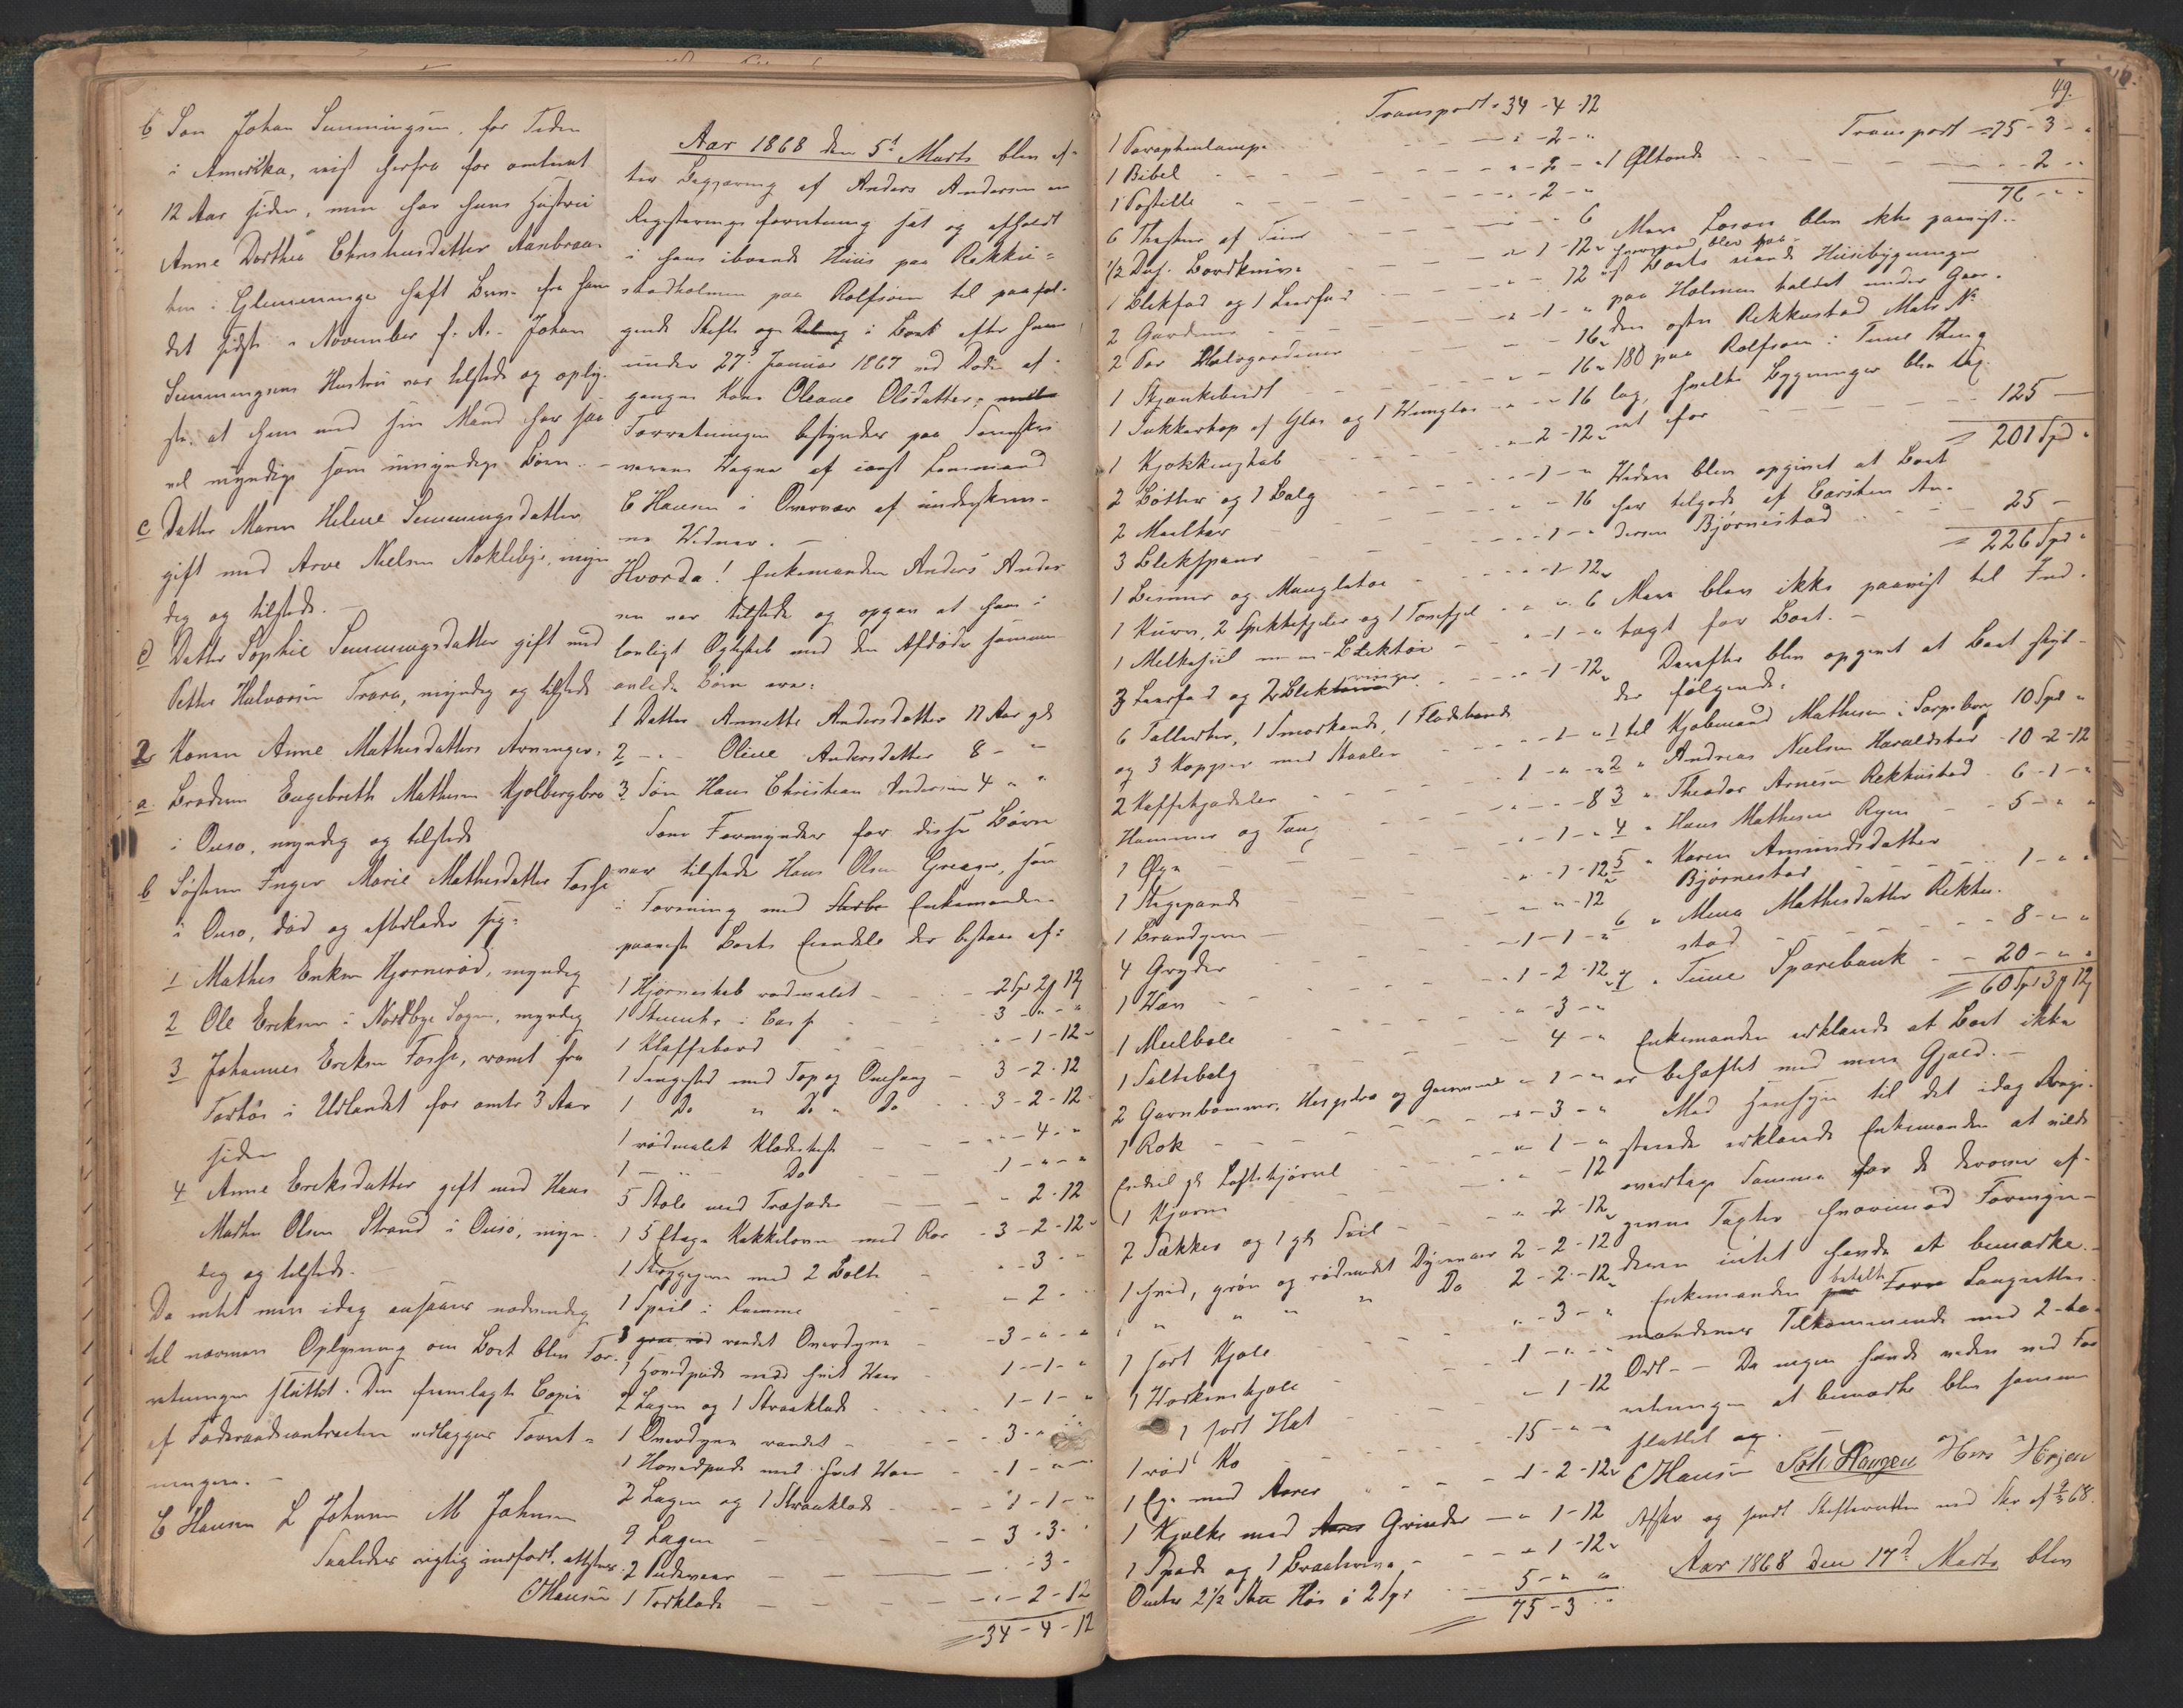 b Søn Johan Semmingsen, for Tiden
i Amerika, reist herfra for omtrent
12 Aar siden, men har hans Hustru
Anne Dorthea Christensdatter Aasebraa-
ten i Glemminge havt Brev fra ham
det sidste i November f. A. Johan
Semmingsens Hustru var tilstede og oply-
ste at hun med sin Mand har saa
vel myndige som umyndige Børn. –
c Datter Maren Helene Semmingsdatter
gift med Arve Nielsen Nokleby, myn
dig og tilstede. –
d Datter Sophie Semmingsdatter gift med
Petter Halvorsen Trara, myndig og tilstede
2. Konen Anne Mathisdatters Arvinger:
a. Broderen Engebreth Mathesen Kjølbergbro
i Onsø, myndig og tilstede
b Søsteren Inger Marie Mathisdatter Fosse
i Onsø, død og efterlader sig:
1 Mathis Eriksen Hjørnerød, myndig
2 Ole Eriksen i Nordbye Sogn, myndig
3 Johannes Eriksen Fosse, rømt fra
Fartøi i Udlandet for omtr 3 Aar
siden
4 Anne Eriksdatter gift med Hans
Mathis Olsen Strand i Onsø, myn-
dig og tilstede. –
Da intet mere idag ansaaes nødvendig
til nærmere Oplysning om Boet blev For-
retningen sluttet. Den fremlagte Copie
af Føderaadscontracten vedlægges Forret-
ningen. –
C Hansen L Johnsen M Johnsen
Saaledes rigtig indført, attesteres.
CHansen
Aar 1868 den 5t Marts blev ef-
ter Begjæring af Anders Andersen en
Registreringsforretning sat og afholdt
i hans iboende Huus paa Rekku-
stadholmen paa Rolfsøen til paaføl-
gende Skifte og Deling i Boet efter hans
under 27. Januar 1867 ved Døden af-
gangne Kone Oleane Olsdatter.
Forretningen bestyrdes paa Sorenskri
verens Vegne af constl Lensmand
C Hansen i Overvær af underskrev-
ne Vidner. –
Hvorda! Enkemanden Anders Ander
sen var tilstede og opgav at hans i
lovligt Ægteskab med den Afdøde sammen
avlede Børn ere:
1 Datter Annette Andersdatter 11 Aar gl
2 –"– Oline Andersdatter 8 – "
3 Søn Hans Christian Andersen 4 " "
Som Formynder for disse Børn
var tilstede Hans Olsen Greager, som
i Forening med Enkemanden
paaviste Boets Eiendele der bestaar af:
1 Hjørneskab rødmalet – 2 Spd 2 12
1 Stueuhr i Casse 3 - " - "
1 Klaffebord " - 1 - 12
1 Sengested med Top og Omhæng – 3 - 2 - 12
1 Do " Do " Do 3 - 2 - 12
1 rødmalet Klædeskiste " - 4 - "
1 – " – Do 1 - " - "
5 Stole med Træsæder " 2 - 12
1 5 Etages Kakkelovn med Rør - 3 - 2 - 12
1 Strygejern med 2 Bolte " - 3 - "
1 Speil i Ramme - 2 - "
1 randet Overdyne - 3 - " - "
1 Hovedpude med hvit Vaar 1 - 1 - "
2 Lagen og 1 Straaklæde 1 - 1 - "
1 Overdyne randet - 3 - "
1 Hovedpude med hvit Vaar - 1 - " - "
2 Lagen og 1 Straaklæde - 1 - 1 - "
9 Lagen 3 - 3 - "
2 Pudevaar - 3 -
1 Torklæde " - 2 - 12
34 - 4 - 12
49.
Transport 34 - 4 - 12
1 Paraphinlampe " - 2 - "
1 Bibel " - 2 - "
1 Postille - 2 - "
6 Theskeer af Tin " - " 6
1/2 Dus. Bordknive " 1 - 12
1 Blikfad og 1 Leerfad " 12
2 Gardiner " - 1 - "
2 Par Halvgardiner - 16
1 Skjænkebret - 16
1 Sukkerkop af Glas og 1 Vinglas " - 16
1 Kjøkkenskab " - 2 - 12
2 Bøtter og 1 Balg - 1 - "
2 Meelkar " - 16
3 Blikspand - 1 - "
1 Bismer og Mangletøi " - 1 - 12
1 Kurv, 2 Spikkefjeler og 1 Tonefjel " - " 6
1 Melkesiil Bliktøi " - 1 - "
3 Leerfad og 2 Blik - 1 - 12
6 Tallerker, 1 Smørkande, 1 Flødekande
og 3 Kopper med Skaaler - 1 - "
2 Kaffekjedeler 1 - " - "
Hammer og Tang " - " - 8
1 Øxe - 1 - "
1 Stegepande " - 1 - 12
1 Brandjern " - " - 12
4 Gryder 1 - 1 - "
1 Væv 1 - 2 - 12
1 Meelbøle " - 3 - "
1 Saltebalg 4 - "
2 Garnbommer, Hespetræ og - 1 - "
1 Rok " - 3 - "
Endeel gl Loftskjørsel " 1 - "
1 Kjærne " - 12
2 Sækker og 1 gl Seil " - 2 - 12
1 hvid, grøn og rødrandet Dynevaar 2 - 2 - 12
1 " " " " Do 2 - 2 - 12
1 sort Kjole " - 3 - "
1 Værkenskjole 1 - " - "
1 sort Hat - 1 - 12
1 rød Ko 15 - " - "
1 Ege med Aarer 1 - 2 - 12
1 Kjælke med Grinder - " 1 - 12
1 Spade og 1 " 1 - 12
Omtr 2 1/2 Hø à 2 Spd 5 - " "
75 - 3 "
Transport 75 - 3 - "
1 Øltønde - 2 - "
76 - " - "
Mere Løsøre blev ikke paavist..
hvorimod blev paa-
vist Boets eiende Huusbygninger
paa Holmen taldet under Gaar-
den østre Rekkustad Matr No
180 paa Rolfsøen i Tune Thing
lag, hvilke Bygninger blev tax-
eret for 125 –
201 Spd "
Videre blev opgivet at Boet
har tilgode af Carsten An-
dersen Bjørnestad 25 –
226 Spd "
Mere blev ikke paavist til Ind-
tægt for Boet. –
Derefter blev opgivet at Boet skyl-
der følgende:
1 til Kjøbmand Mathesen i Sarpsborg 10 Spd "
2 " Andreas Nielsen Haraldstad - 10 - 2 - 12
3 " Theodor Arnesen Rekkustad - 6 - 1 - "
4 " Hans Mathesen Ryen - 5 - " "
5 " Karen Amundsdatter
Bjørnestad 1 - " "
6 " Mina Mathisdatter Rekku-
stad 8 - " "
7 " Tune Sparebank - 20 - " "
60 Spd 3 12
Enkemanden erklærede at Boet ikke
er beheftet med mere Gjæld. –
Med Hensyn til det idag Regi-
strerede erklærede Enkemanden at ville
overtage Samme for de derover af-
givne Taxter hvorimod Formyn-
deren intet havde at bemærke. –
Enkemanden betalte Laugrettes-
mændenes Tilkommende med 2 -to-
Ort. – Da ingen havde videre ved For
retningen at bemærke blev samme
sluttet og. –
CHansen Joh: Haugen Hans
Afskr og sendt Skifteretten med Skr af 9/3 68.
Aar 1868 den 17d Marts blev